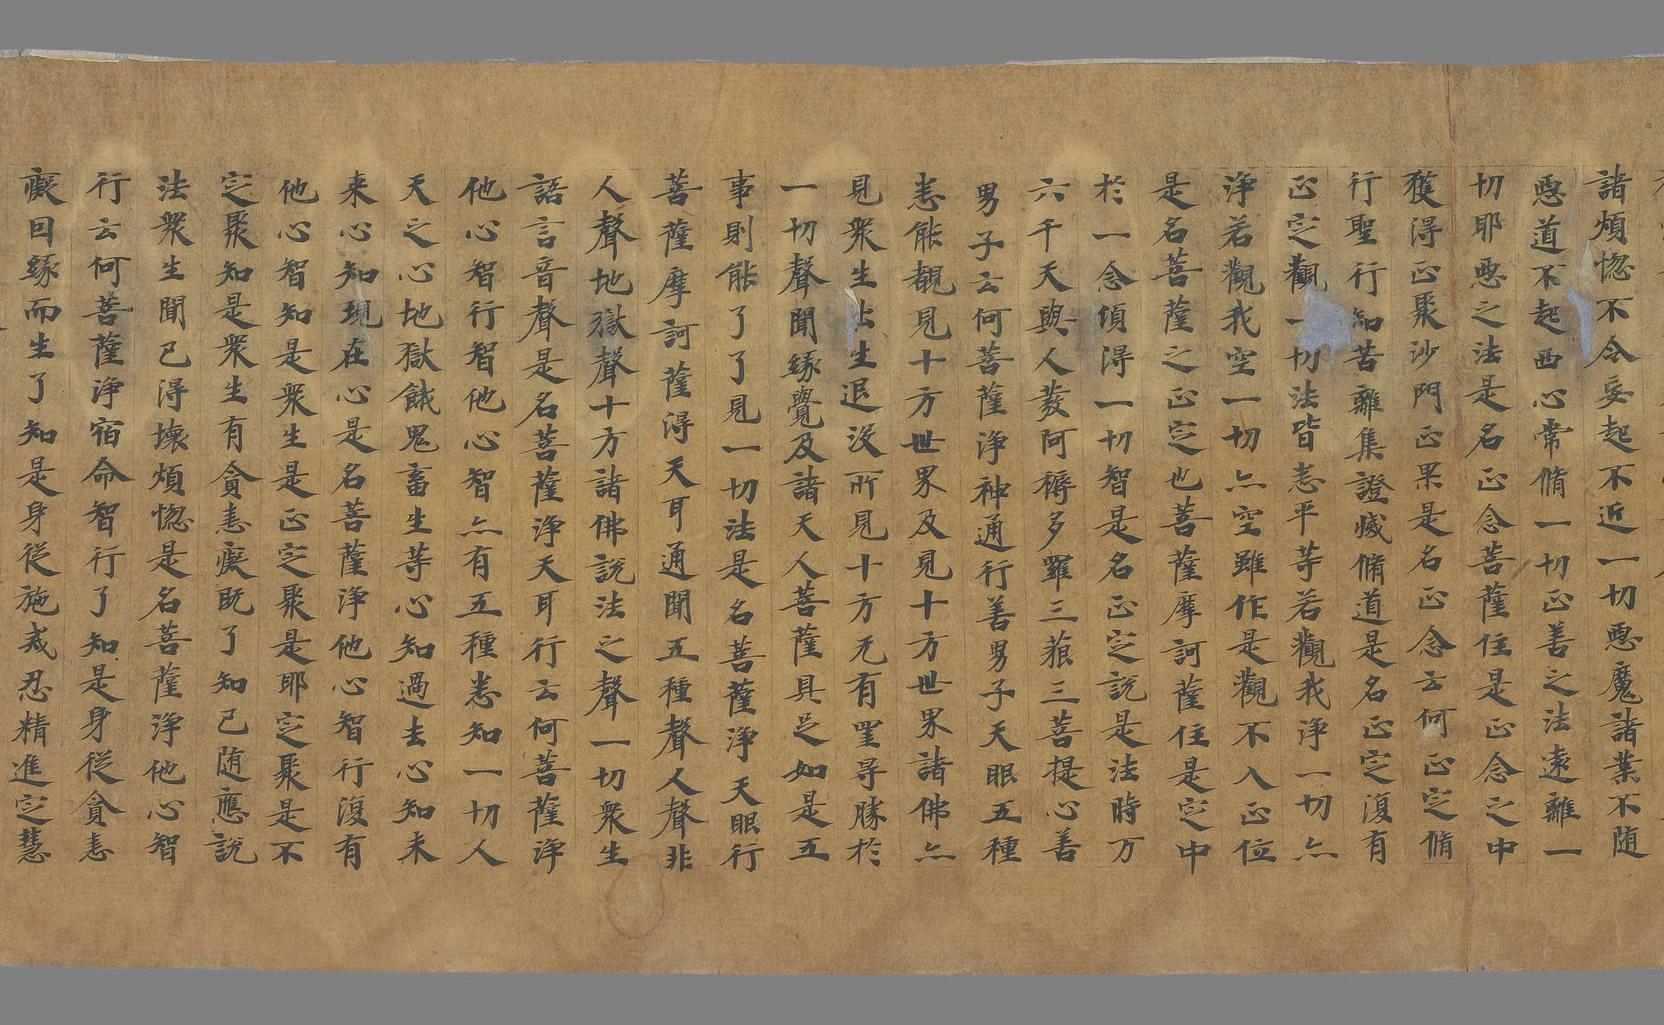 諸煩惱不令妄起不近一切惡魔諸業不随
惡道不起西心常脩一切正善之法遠離一
切耶惡之法是名正念菩薩住是正念之中
獲得正聚沙門正果是名正念云何正定脩
行聖行知苦離集證滅脩道是名正定復有
正定觀一切法皆悉平等若觀我淨一切亦
淨若觀我空一切亦空雖作是觀不入正位
是名菩薩之正定也菩薩摩訶薩住是定中
於一念頃得一切智是名正定說是法時万
六千天與人發阿耨多羅三藐三菩提心善
男子云何菩薩淨神通行善男子天眼五種
悉能覩見十方世界及見十方世界諸佛亦
見衆生出生退没所見十方无有罣㝵勝於
一切聲聞緣覺及諸天人菩薩具足如是五
事則能了了見一切法是名菩薩淨天眼行
菩薩摩訶薩得天耳通聞五種聲人聲非
人聲地獄聲十方諸佛說法之聲一切衆生
語言音聲是名菩薩淨天耳行云何菩薩淨
他心智行智他心智亦有五種悉知一切人
天之心地獄餓鬼畜生等心知過去心知未
来心知現在心是名菩薩淨他心智行復有
他心智知是衆生是正定聚是耶定聚是不
定聚知是衆生有貪恚癡既了知已随應說
法衆生聞已得壞煩惱是名菩薩淨他心智
行云何菩薩淨宿命智行了知是身從貪恚
癡因緣而生了知是身從施戒忍精進定慧